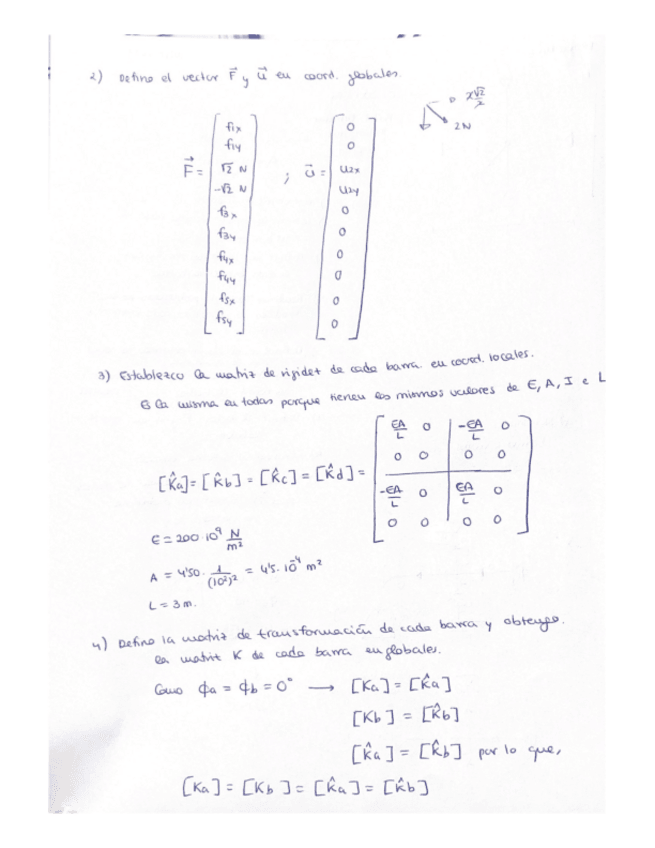 2) Defino el vector F⃗ y u⃗ en coord. globales.
D 2√2/2
2N
F⃗ = [ f1x f1y √2 N -√2 N f3x f3y f4x f4y f5x f5y ] ; u⃗ = [ 0 0 u2x u2y 0 0 0 0 0 0 ]
3) Establezco la matriz de rigidez de cada barra en coord. locales.
Es la misma en todas porque tienen los mismos valores de E, A, I e L
[K̂a] = [K̂b] = [K̂c] = [K̂d] =
EA/L 0 -EA/L 0
0 0 0 0
-EA/L 0 EA/L 0
0 0 0 0
E = 200·10⁹ N/m²
A = 4'50 · 1/(10²)² = 4'5·10⁻⁴ m²
L = 3 m.
4) Defino la matriz de transformación de cada barra y obtengo
la matriz K de cada barra en globales.
Como ϕa = ϕb = 0° → [Ka] = [K̂a]
[Kb] = [K̂b]
[K̂a] = [K̂b] por lo que,
[Ka] = [Kb] = [K̂a] = [K̂b]